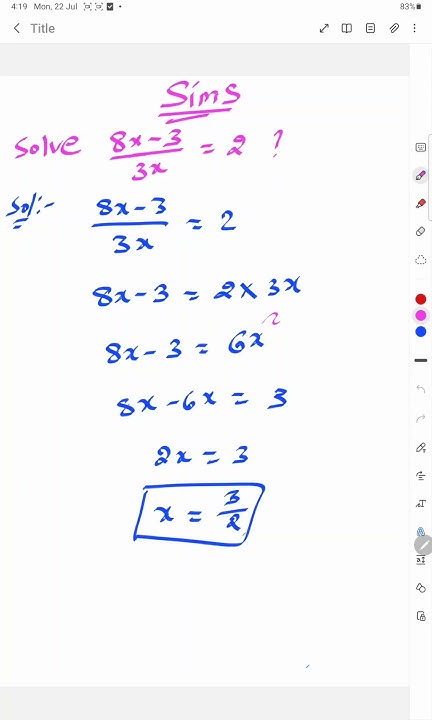 4:19 Mon, 22 Jul 83%
Title
Sims
Solve (8x-3)/(3x) = 2 ?
Sol:- (8x-3)/(3x) = 2
8x-3 = 2x 3x
8x-3 = 6x²
8x-6x = 3
2x = 3
x = 3/2